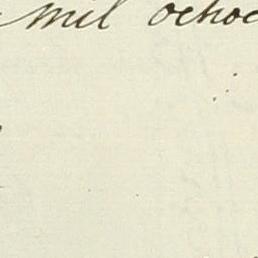 mil ochoc